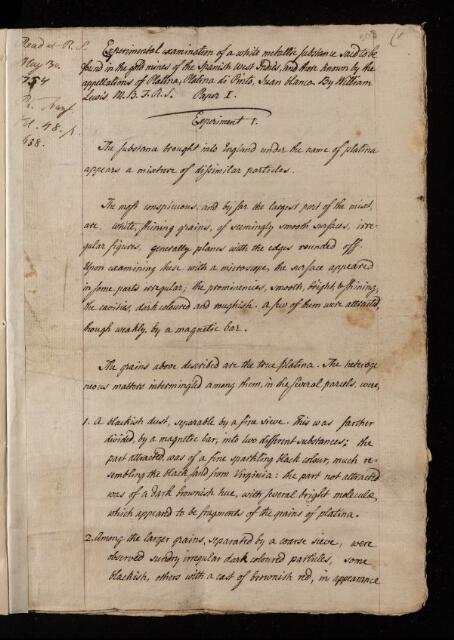 Read at R. S.
May 30.
1754
Experimental examination of a white metallic substance said to be
found in the gold mines of the Spanish West Indies, and there known by the
appellations of Platina, Platina di Pinto, Juan blanca. By William
Lewis M. B. F. R. S. Paper I.
Experiment 1.
The substance brought into England under the name of platina
appears a mixture of dissimilar particles.
The most conspicuous, and by far the largest part of the mixt,
are white, shining grains, of seemingly smooth surfaces, irre-
gular figures, generally planes with the edges rounded off.
Upon examining these with a microscope, the surface appeared
in some parts irregular; the prominencies, smooth, bright, & shining;
the cavities, dark coloured and roughish. A few of them were attracted,
though weakly, by a magnetic bar.
The grains above described are the true platina. The heteroge
neous matters intermingled among them, in the several parcels, were,
1. A blackish dust, separable by a fine sieve. This was farther
divided, by a magnetic bar, into two different substances; the
part attracted, was of a fine sparkling black colour, much re-
sembling the black sand from Virginia: the part not attracted
was of a dark brownish hue, with several bright molecule,
which appeared to be fragments of the grains of platina.
2. Among the larger grains, separated by a coarse sieve, were
observed sundry irregular dark coloured particles, some
blackish, others with a cast of brownish red, in appearance